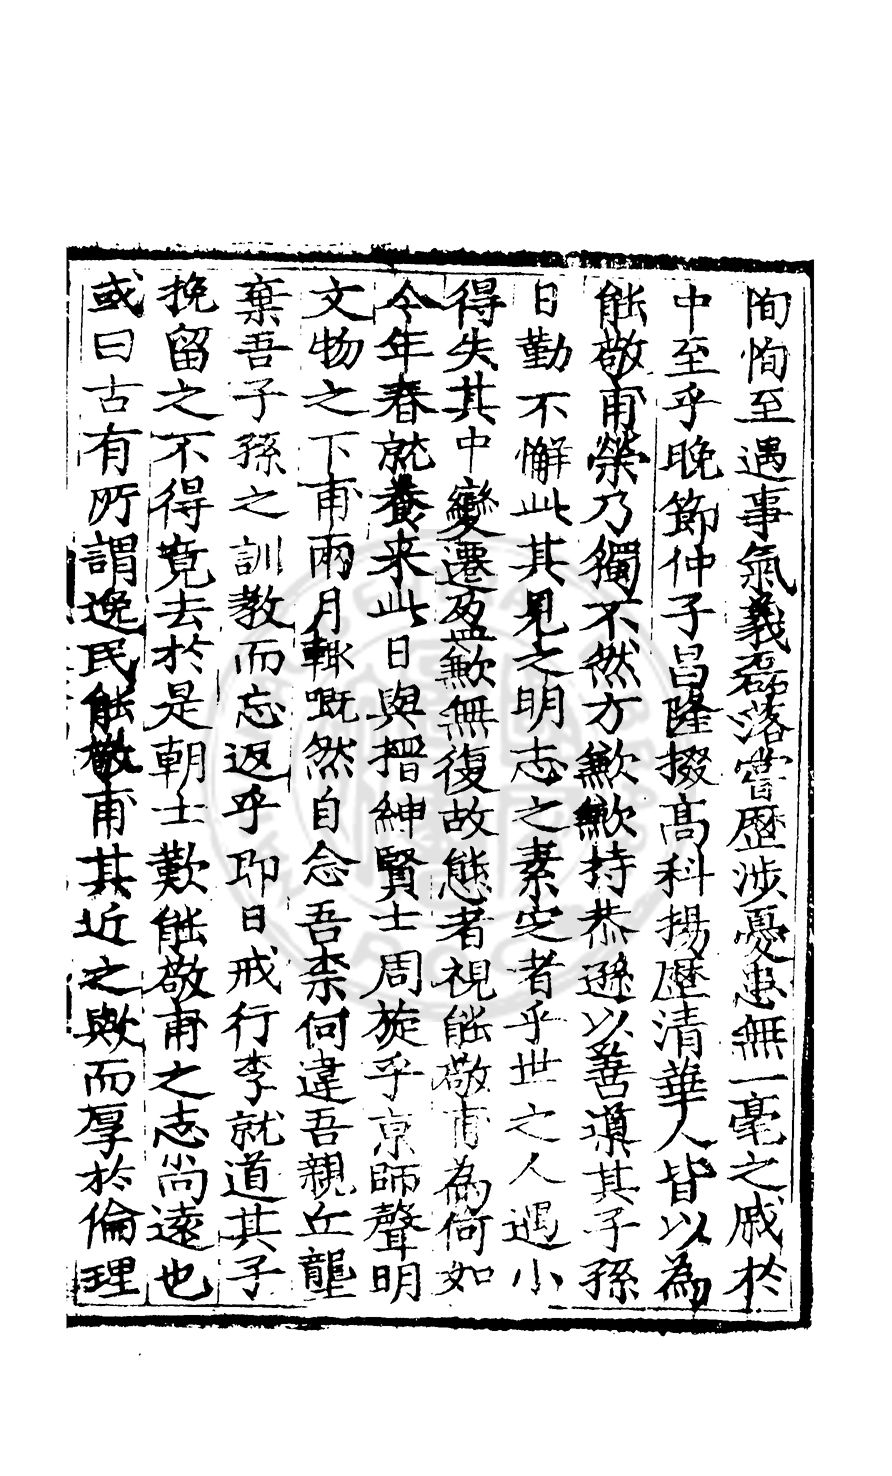 恂恂至遇事氣義磊落嘗歷涉憂患無一毫之戚於
中至乎晚節仲子昌隆掇高科揚歷清華人皆以為
能敬甫榮乃獨不然方歉歉持恭遜以善導其子孫
日勤不懈此其見之明志之素定者乎世之人遇小
得失其中變遷盈歉無復故態者視能敬甫為何如
今年春就養来此日與搢紳賢士周旋乎京師聲明
文物之下甫兩月輒嘅然自念吾柰何違吾親丘壟
棄吾子孫之訓教而忘返乎即日戒行李就道其子
挽留之不得竟去於是朝士歎能敬甫之志尚遠也
或曰古有所謂逸民能敬甫其近之歟而厚於倫理